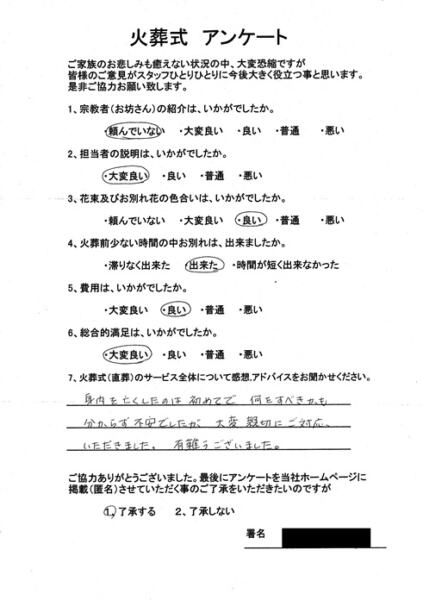 火葬式 アンケート
ご家族のお悲しみも癒えない状況の中、大変恐縮ですが
皆様のご意見がスタッフひとりひとりに今後大きく役立つ事と思います。
是非ご協力お願い致します。
1、宗教者(お坊さん)の紹介は、いかがでしたか。
・頼んでいない ・大変良い ・良い ・普通 ・悪い
2、担当者の説明は、いかがでしたか。
・大変良い ・良い ・普通 ・悪い
3、花束及びお別れ花の色合いは、いかがでしたか。
・頼んでいない ・大変良い ・良い ・普通 ・悪い
4、火葬前少ない時間の中お別れは、出来ましたか。
・滞りなく出来た ・出来た ・時間が短く出来なかった
5、費用は、いかがでしたか。
・大変良い ・良い ・普通 ・悪い
6、総合的満足は、いかがでしたか。
・大変良い ・良い ・普通 ・悪い
7、火葬式(直葬)のサービス全体について感想、アドバイスをお聞かせください。
身内を亡くしたのは初めてで 何をすべきかも
分からず不安でしたが 大変親切にご対応
いただきました。 有難うございました。
ご協力ありがとうございました。最後にアンケートを当社ホームページに
掲載(匿名)させていただく事のご了承をいただきたいのですが
1、了承する 2、了承しない
署名